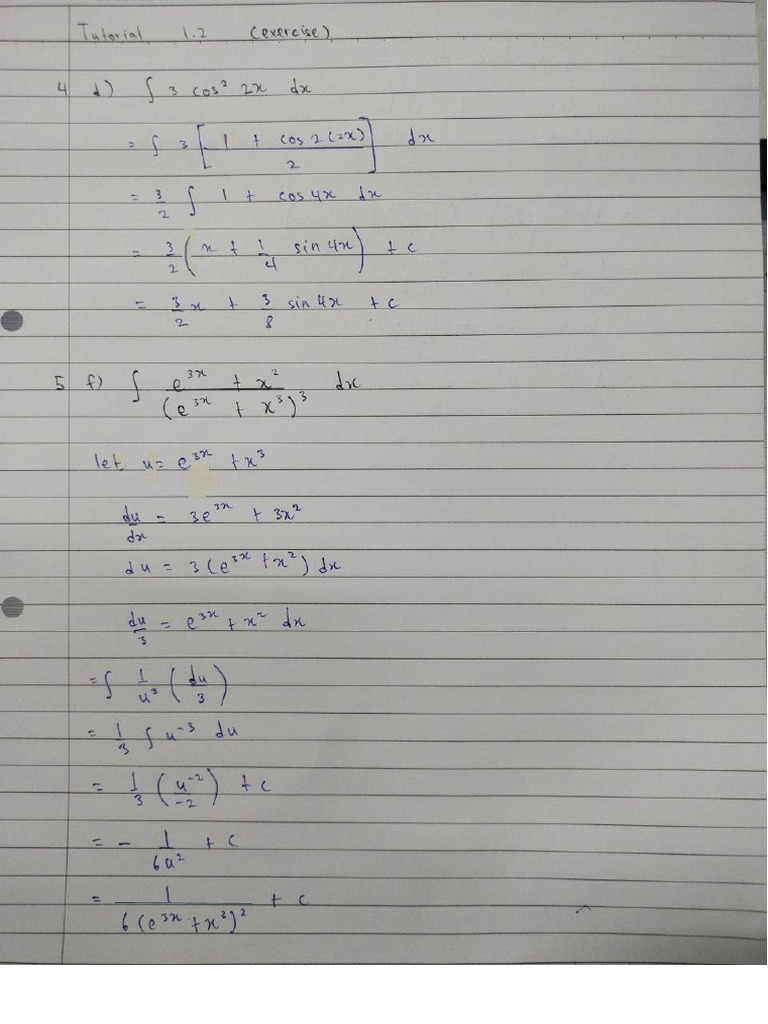 Tutorial 1.2 (exercise)
4 d) ∫ 3 cos² 2x dx
= ∫ 3 [ (1 + cos 2(2x)) / 2 ] dx
= 3/2 ∫ 1 + cos 4x dx
= 3/2 ( x + 1/4 sin 4x ) + c
= 3/2 x + 3/8 sin 4x + c
5 f) ∫ (e³ˣ + x²) / (e³ˣ + x³)³ dx
let u = e³ˣ + x³
du/dx = 3e³ˣ + 3x²
du = 3(e³ˣ + x²) dx
du/3 = e³ˣ + x² dx
= ∫ 1/u³ ( du/3 )
= 1/3 ∫ u⁻³ du
= 1/3 ( u⁻²/-2 ) + c
= - 1/6u² + c
= 1 / 6(e³ˣ + x³)² + c